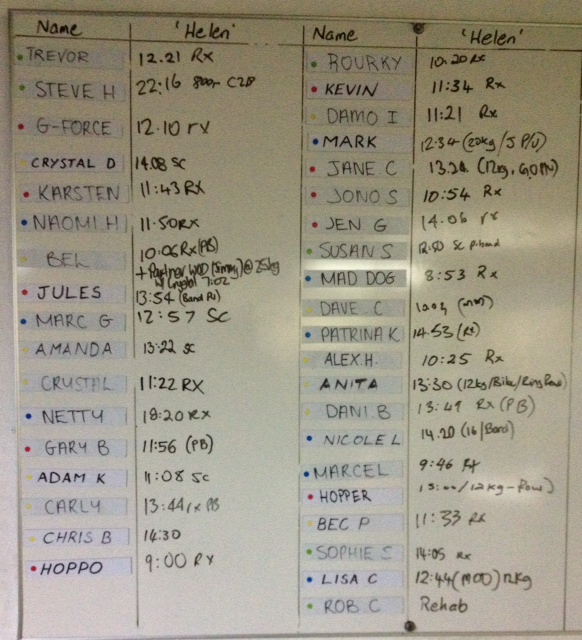 Name 'Helen'
TREVOR 12.21 Rx
STEVE H 22:16 800m C2B
G-FORCE 12.10 rx
CRYSTAL D 14.08 SC
KARSTEN 11:43 RX
NAOMI.H 11:50 RX
BEL 10:06 Rx (PB)
+ Partner WOD @ 25kg
w/ Crystal 7:02
JULES 13:54 (Band Pu)
MARC G 12:57 SC
AMANDA 13:22 SC
CRYSTAL 11:22 RX
NETTY 18:20 RX
GARY B 11:56 (PB)
ADAM K 11:08 SC
CARLY 13:44 rx PB
CHRIS B 14:30
HOPPO 9:00 RX
Name 'Helen'
ROURKY 10:20 RX
KEVIN 11:34 Rx
DAMO I 11:21 Rx
MARK 12:34 (20kg/J P/U)
JANE.C 13.24 (12kg,
JONO S 10:54 Rx
JEN G 14:06 rx
SUSAN S 12:50 SC p.band
MAD DOG 8:53 Rx
DAVE.C
PATRINA K 14.53 (Rx)
ALEX.H. 10:25 Rx
ANITA 13:30 (12kg/Bike/Ring Row)
DANI.B 13:49 RX (PB)
NICOLE L 14.20 (16/Band)
MARCEL 9:46 RX
HOPPER 12kg-Row)
BEC P 11:33 RX
SOPHIE S 14:05 RX
LISA C 12:44 (MOD) 12kg
ROB C Rehab